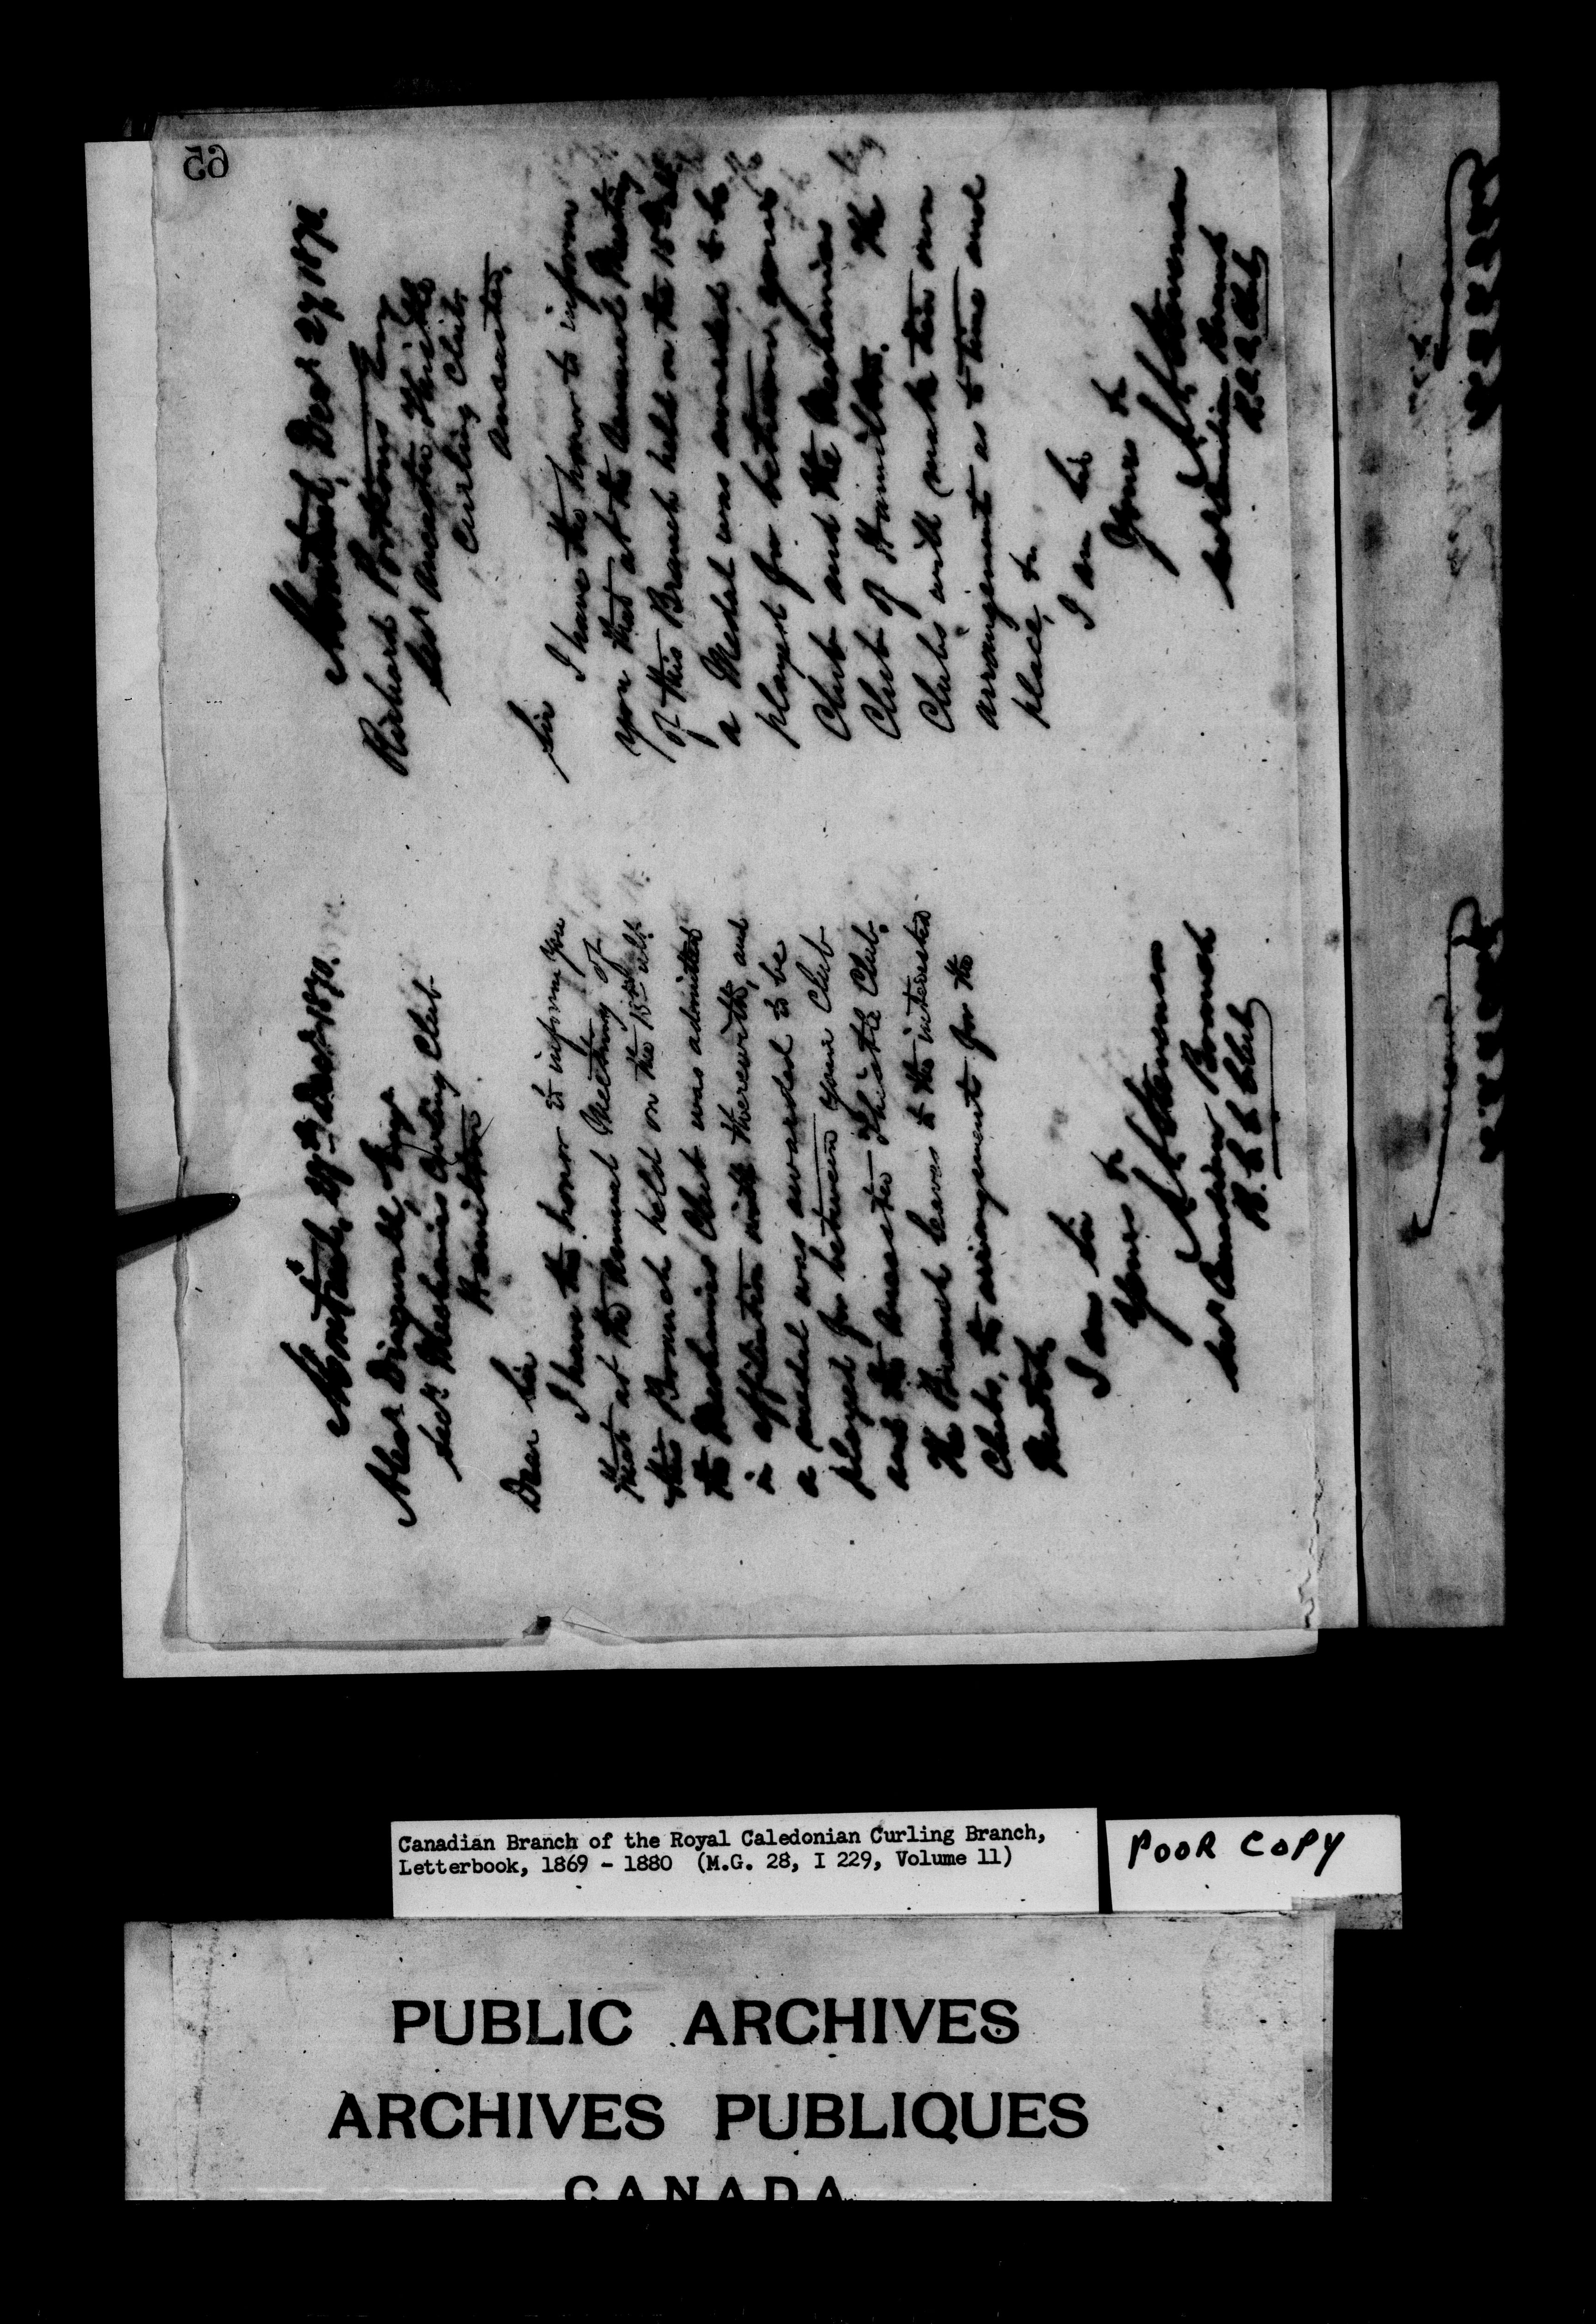 65
Montreal, 27th Decr 1870.
Alexr Dingwall Esqr
Secy Mechanics Curling Club
Hamilton
Dear Sir
I have the honor to inform you
that at the Annual Meeting of
this Branch held on the 15th ult.
the Mechanics Club was admitted
in affiliation with therewith, and
a medal was awarded to be
played for between your Club
and the Ancaster Thistle Club.
The Branch leaves to the interested
Clubs, the arrangement for the
I am Sir
Yours &c
Secy Canadian Branch
R. C. C. Club
Montreal, Decr 27 1870.
Richard Esq
Secy Ancaster Thistle
Curling Club,
Ancaster,
Sir
I have the honor to inform
you that at the Annual Meeting
of this Branch held on the 15th ult
a Medal was awarded to be
played for between your
Club and the Mechanics
Club of Hamilton. The
Clubs will make their own
arrangement as to time and
place, &c
I am Sir
Yours &c
Secy Canadian Branch
R. C. C. Club
Canadian Branch of the Royal Caledonian Curling Branch,
Letterbook, 1869 - 1880 (M.G. 28, I 229, Volume 11)
POOR COPY
PUBLIC ARCHIVES
ARCHIVES PUBLIQUES
CANADA